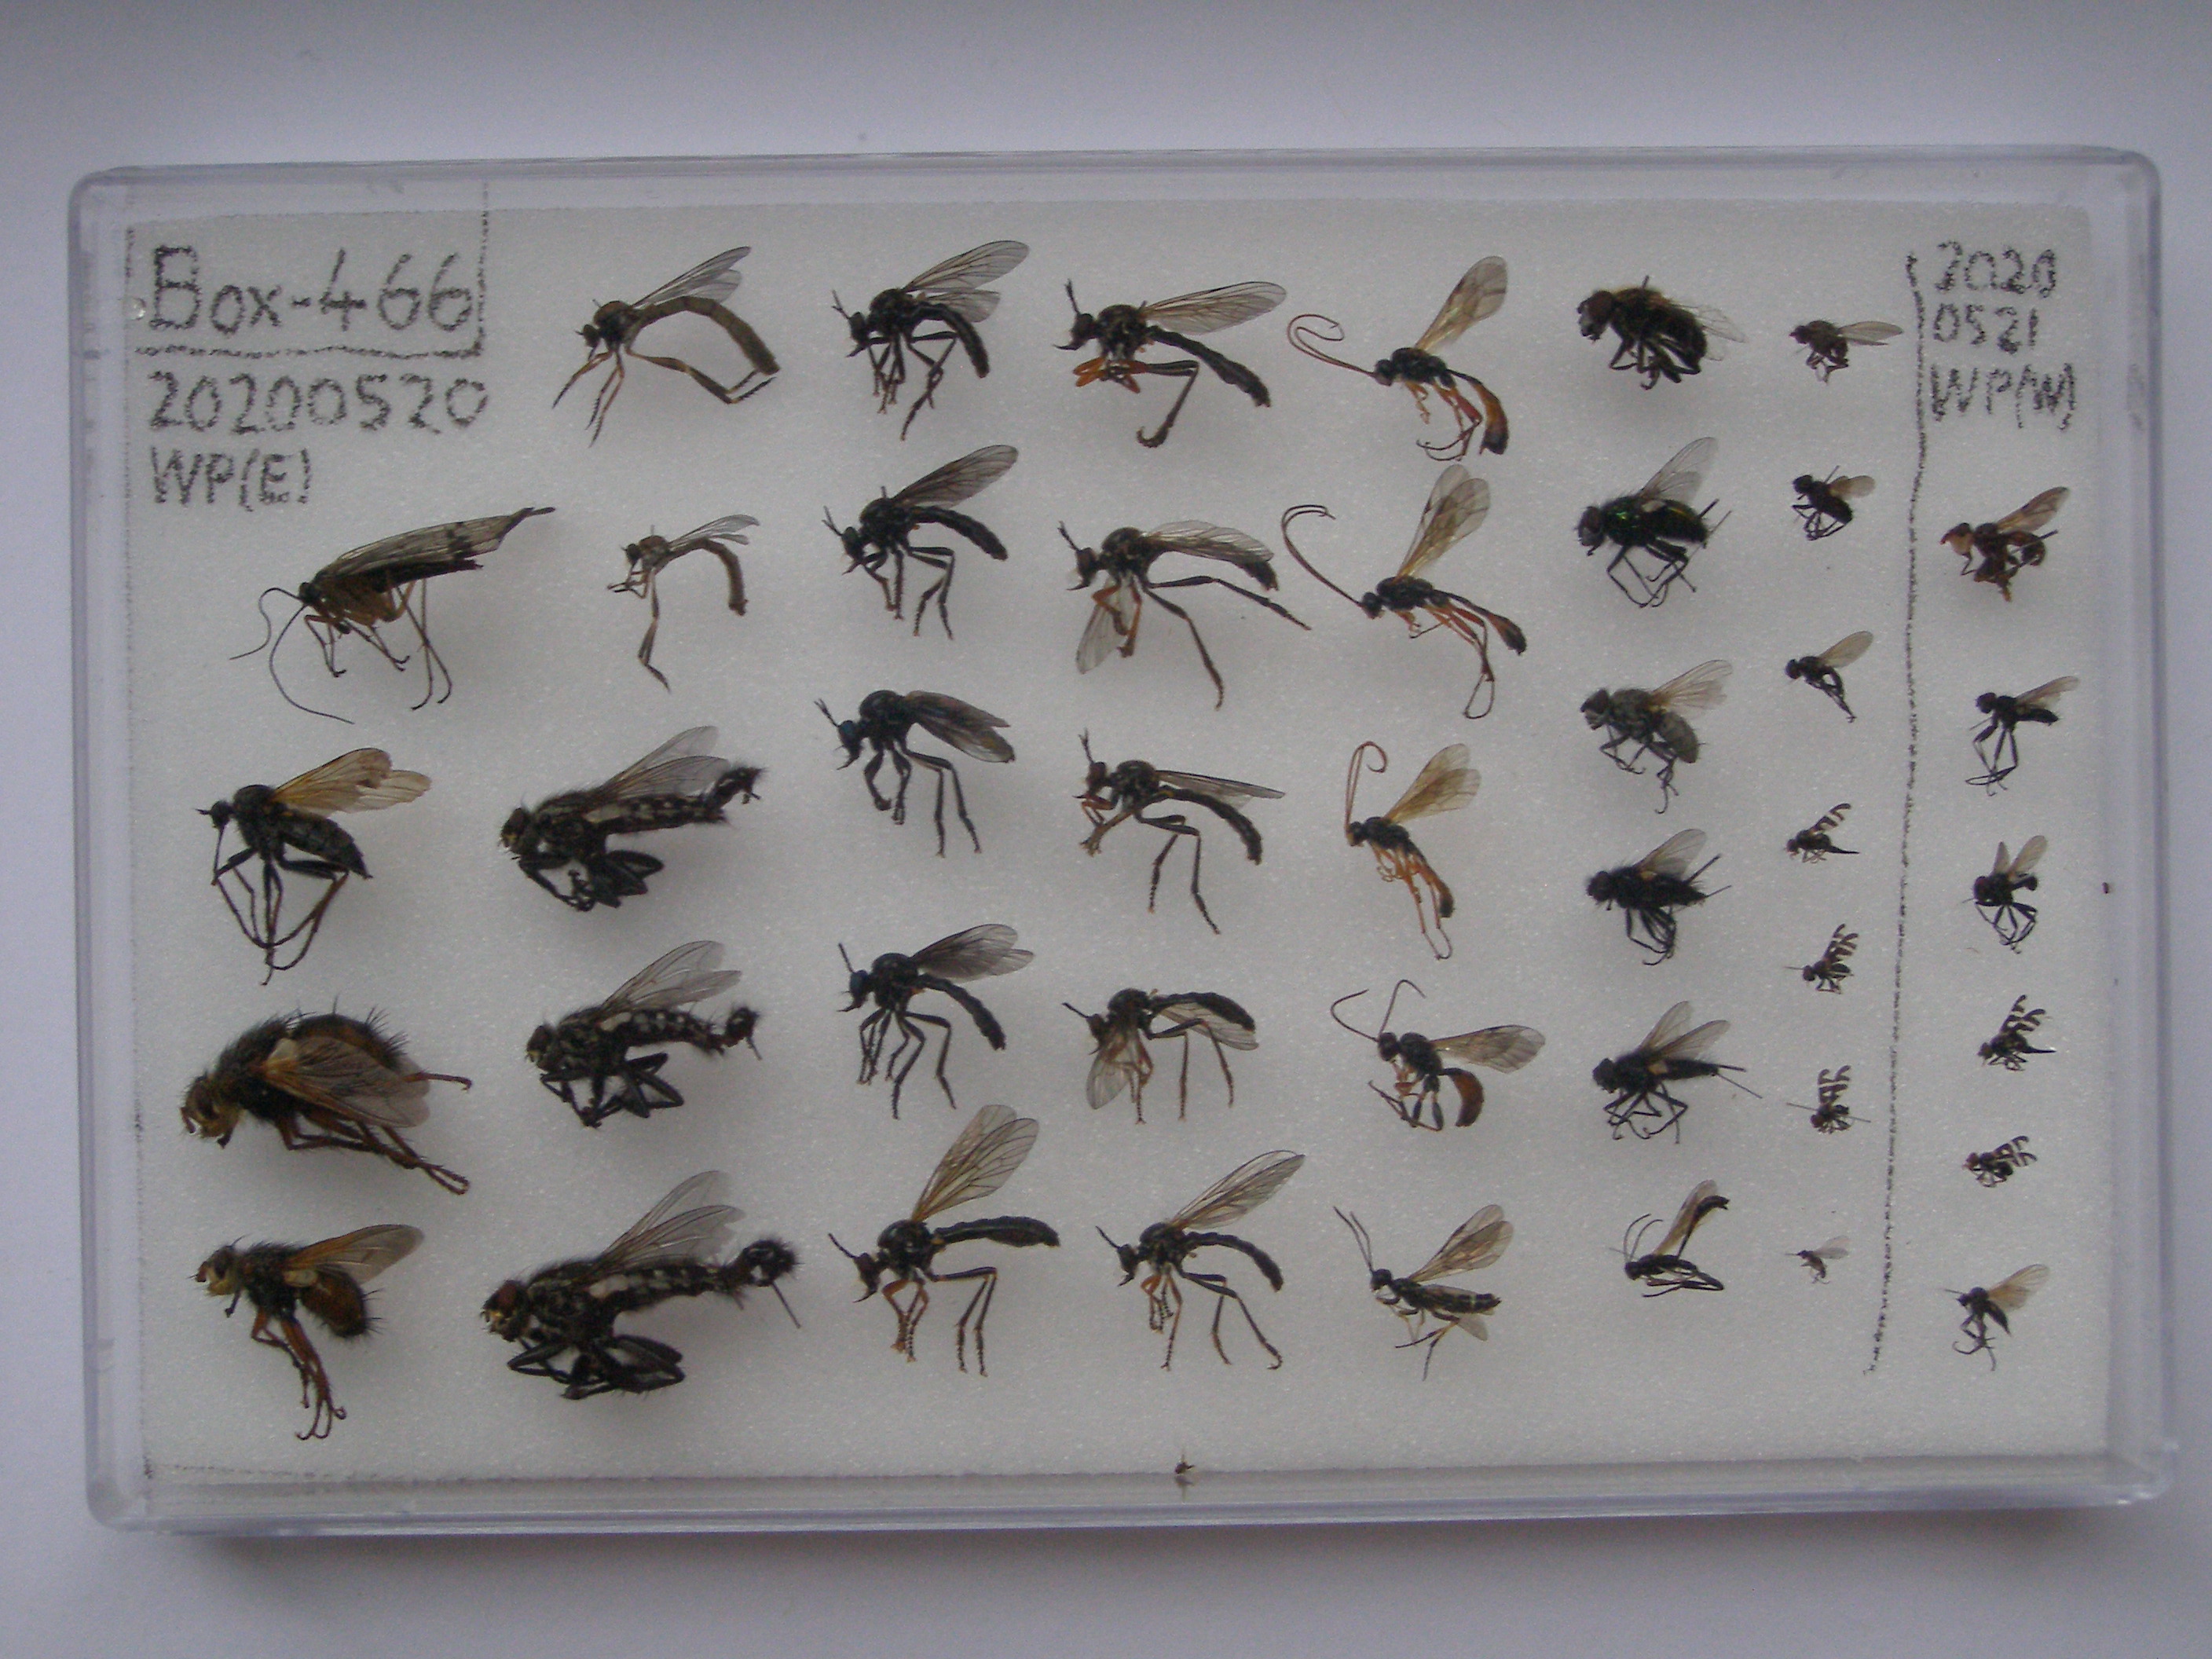 Box-466
20200520
WP(E)
2020
0521
WP(W)